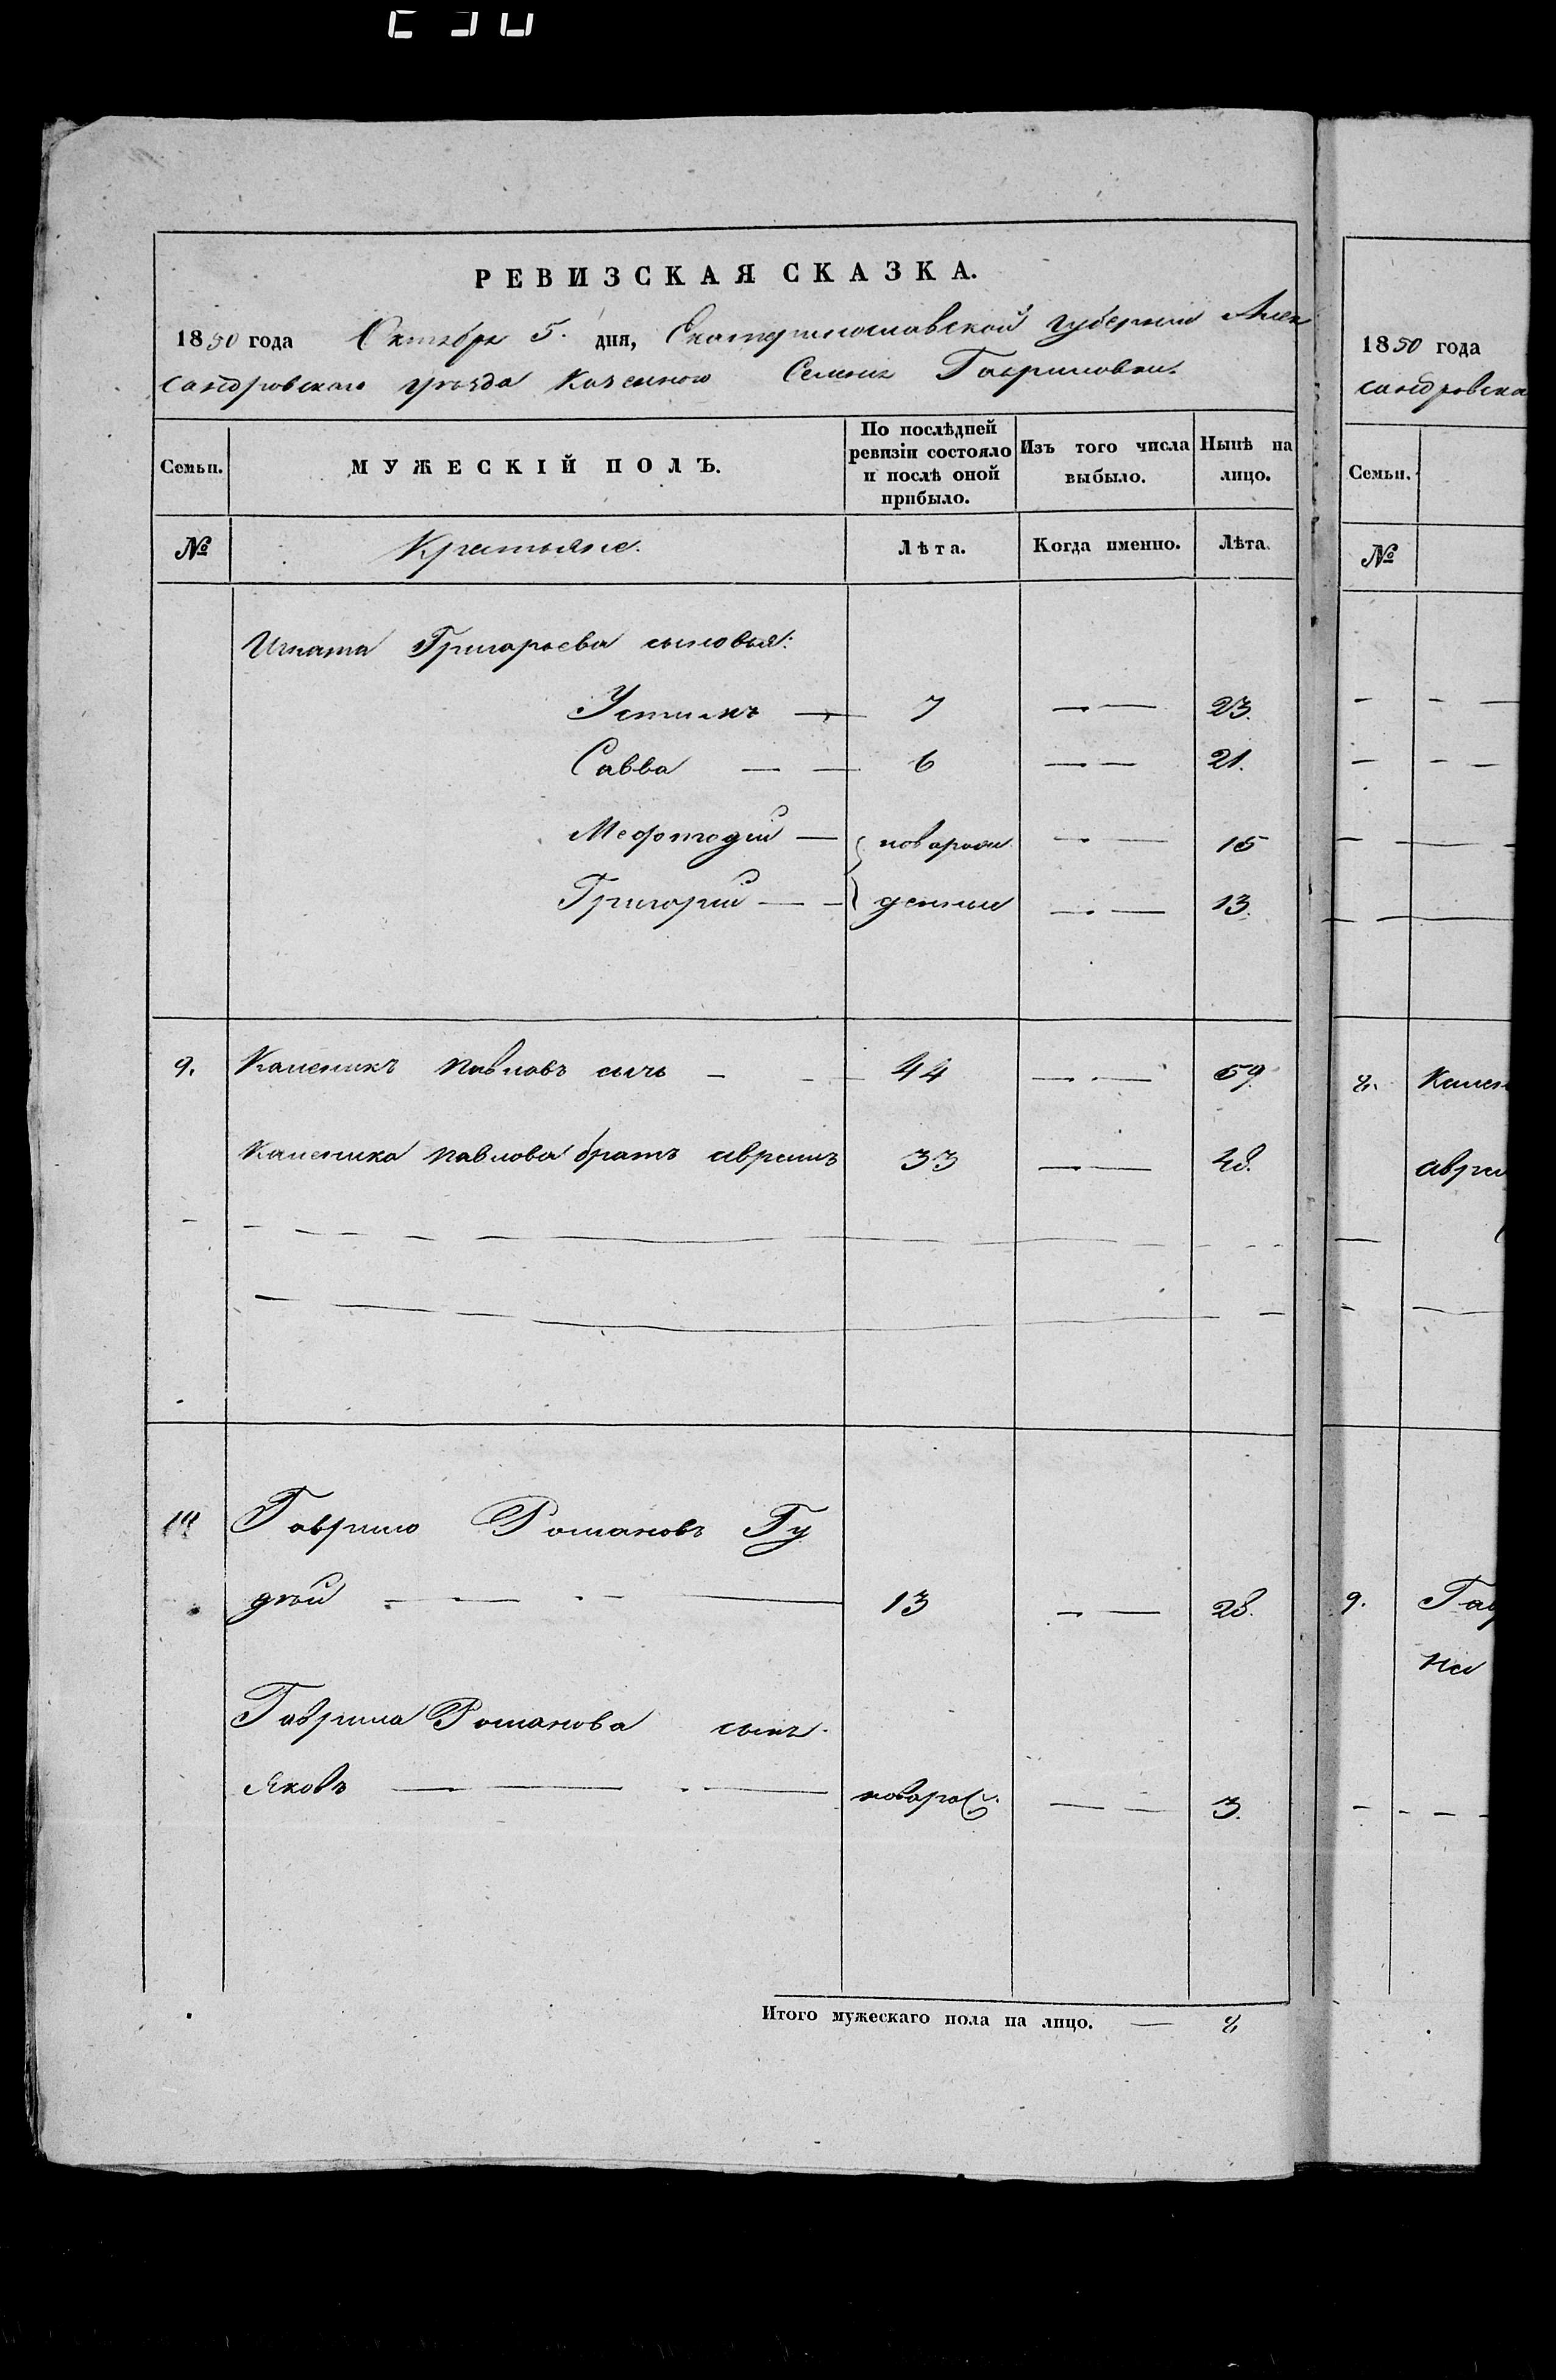 РЕВИЗСКАЯ СКАЗКА.
1850 года Октября 5. дня, Екатеринославской губернии Алек
сандровскаго уѣзда казенного Селенія Гавриловки.
Семьи. МУЖЕСКІЙ ПОЛЪ. По послѣдней ревизіи состояло и послѣ оной прибыло. Изъ того числа выбыло. Нынѣ на лицо.
№ Крестьяне. Лѣта. Когда именно. Лѣта.
Игната Григорьева сыновья:
Устимъ — 7 — — 23.
Савва — — 6 — — 21.
Мефотодій — новорож — — 15
Григорій — — денные — — 13.
9. Каленикъ Павловъ сынъ — — — 44 — — 59.
Каленика Павлова братъ аврамъ 33 — — 48.
10 Гаврило Романовъ Гу
дзій — — — — 13 — — 28.
Гаврила Романова сынъ
Яковъ — — — — новорож. — — 3.
Итого мужескаго пола на лицо. — 8
1850 года
сандровска
Семьи.
№
8. Кален
аврам
9. Гав
на